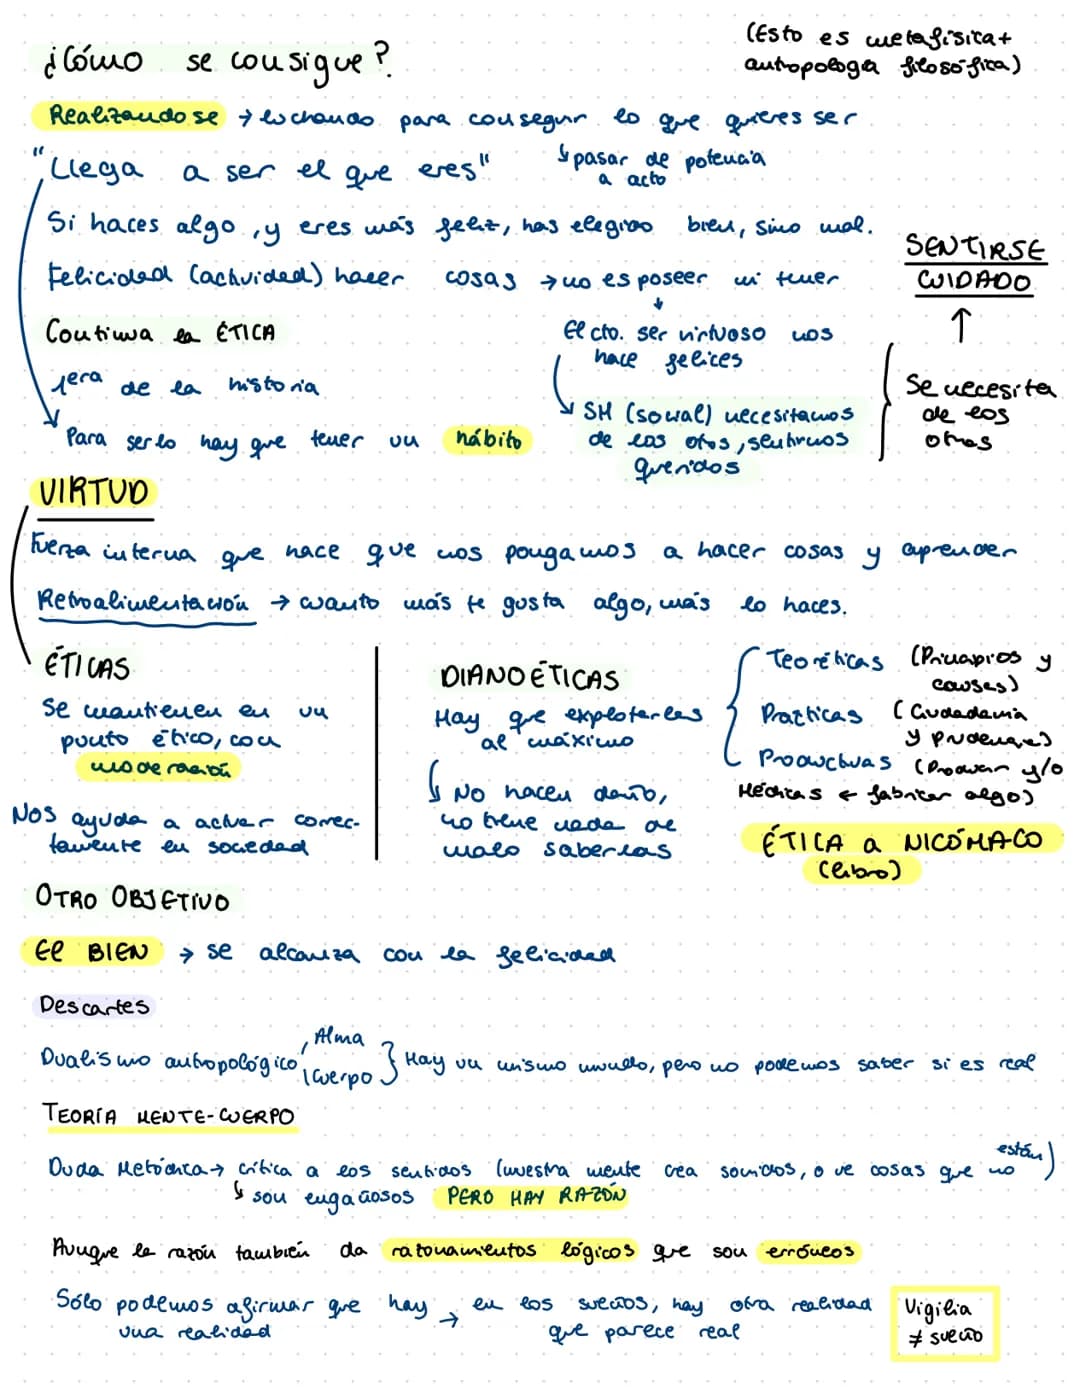 ¿Cómo se consigue?
(Esto es metafísica +
antropología filosófica)
Realizandose → luchando para conseguir lo que quieres ser
"Llega a ser el que eres"
↳ pasar de potencia
a acto
Si haces algo, y eres más feliz, has elegido bien, sino mal.
Felicidad (actividad) hacer cosas → no es poseer ni tener
SENTIRSE
CUIDADO
Continua la ÉTICA
1era de la historia
El cto. ser virtuoso nos
hace felices
Se necesita
de los
otros
Para serlo hay que tener un hábito
SH (social) necesitamos
de los otros, sentirnos
queridos
VIRTUD
Fuerza interna que hace que nos pongamos a hacer cosas y aprender
Retroalimentación → cuanto más te gusta algo, más lo haces.
ÉTICAS
Se mantienen en un
punto ético, con
moderación
Nos ayuda a actuar correc-
tamente en sociedad
DIANOÉTICAS
Hay que explotarlas
al máximo
↳ No hacen daño,
no tiene nada de
malo saberlas
Teoréticas (Principios y
causes)
Practicas (Ciudadania
y prudencia)
Productivas (Producir y/o
Médicas ← fabricar algo)
ÉTICA a NICÓMACO
(libro)
OTRO OBJETIVO
El BIEN → se alcanza con la felicidad
Descartes
Dualismo antropológico
Alma
Cuerpo
Hay un mismo mundo, pero no podemos saber si es real
TEORÍA MENTE-CUERPO
Duda Metódica → crítica a los sentidos (nuestra mente crea sonidos, o ve cosas que no están)
↳ son engañosos PERO HAY RAZÓN
Aunque la razón también da razonamientos lógicos que son erróneos
Sólo podemos afirmar que hay
una realidad
→ en los sueños, hay otra realidad
que parece real
Vigilia
≠ sueño